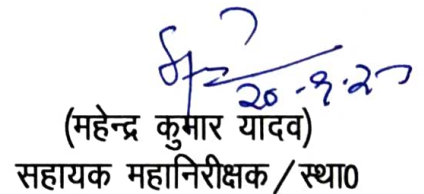 20-9-23
(महेन्द्र कुमार यादव)
सहायक महानिरीक्षक/स्था0